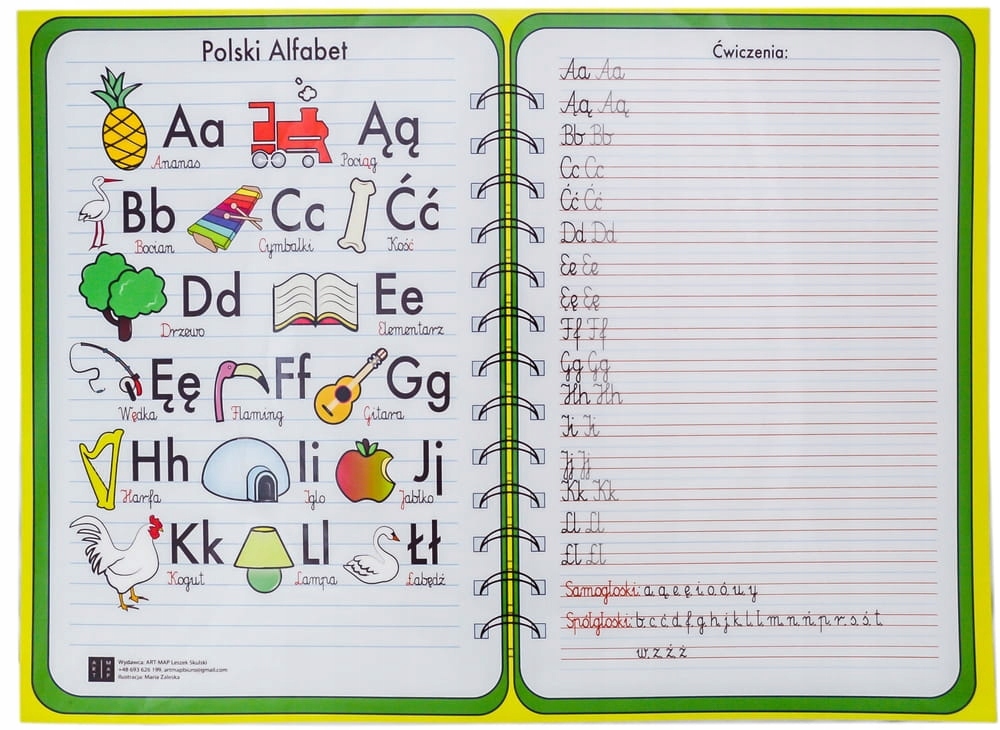 Polski Alfabet
Aa Ąą
Ananas Pociąg
Bb Cc Ćć
Bocian Cymbałki Kość
Dd Ee
Drzewo Elementarz
Ęę Ff Gg
Wędka Flaming Gitara
Hh Ii Jj
Harfa Iglo Jabłko
Kk Ll Łł
Kogut Lampa Łabędź
ART MAP
Wydawca: ART MAP Leszek Skulski
+48 693 626 199, artmapbiuro@gmail.com
Ilustracja: Maria Zaleska
Ćwiczenia:
Aa Aa
Ąą Ąą
Bb Bb
Cc Cc
Ćć Ćć
Dd Dd
Ee Ee
Ęę Ęę
Ff Ff
Gg Gg
Hh Hh
Ii Ii
Jj Jj
Kk Kk
Ll Ll
Łł Łł
Samogłoski: a ą e ę i o ó u y
Spółgłoski: b c ć d f g h j k l ł m n ń p r s ś t
w z ź ż